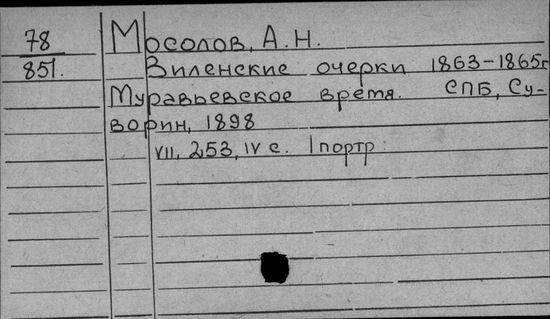 78
851.
Мосолов, А.Н.
Виленские очерки 1863-1865г
Муравьевское время. СПБ, Су-
ворин, 1898
VII, 253, IV с. 1 портр